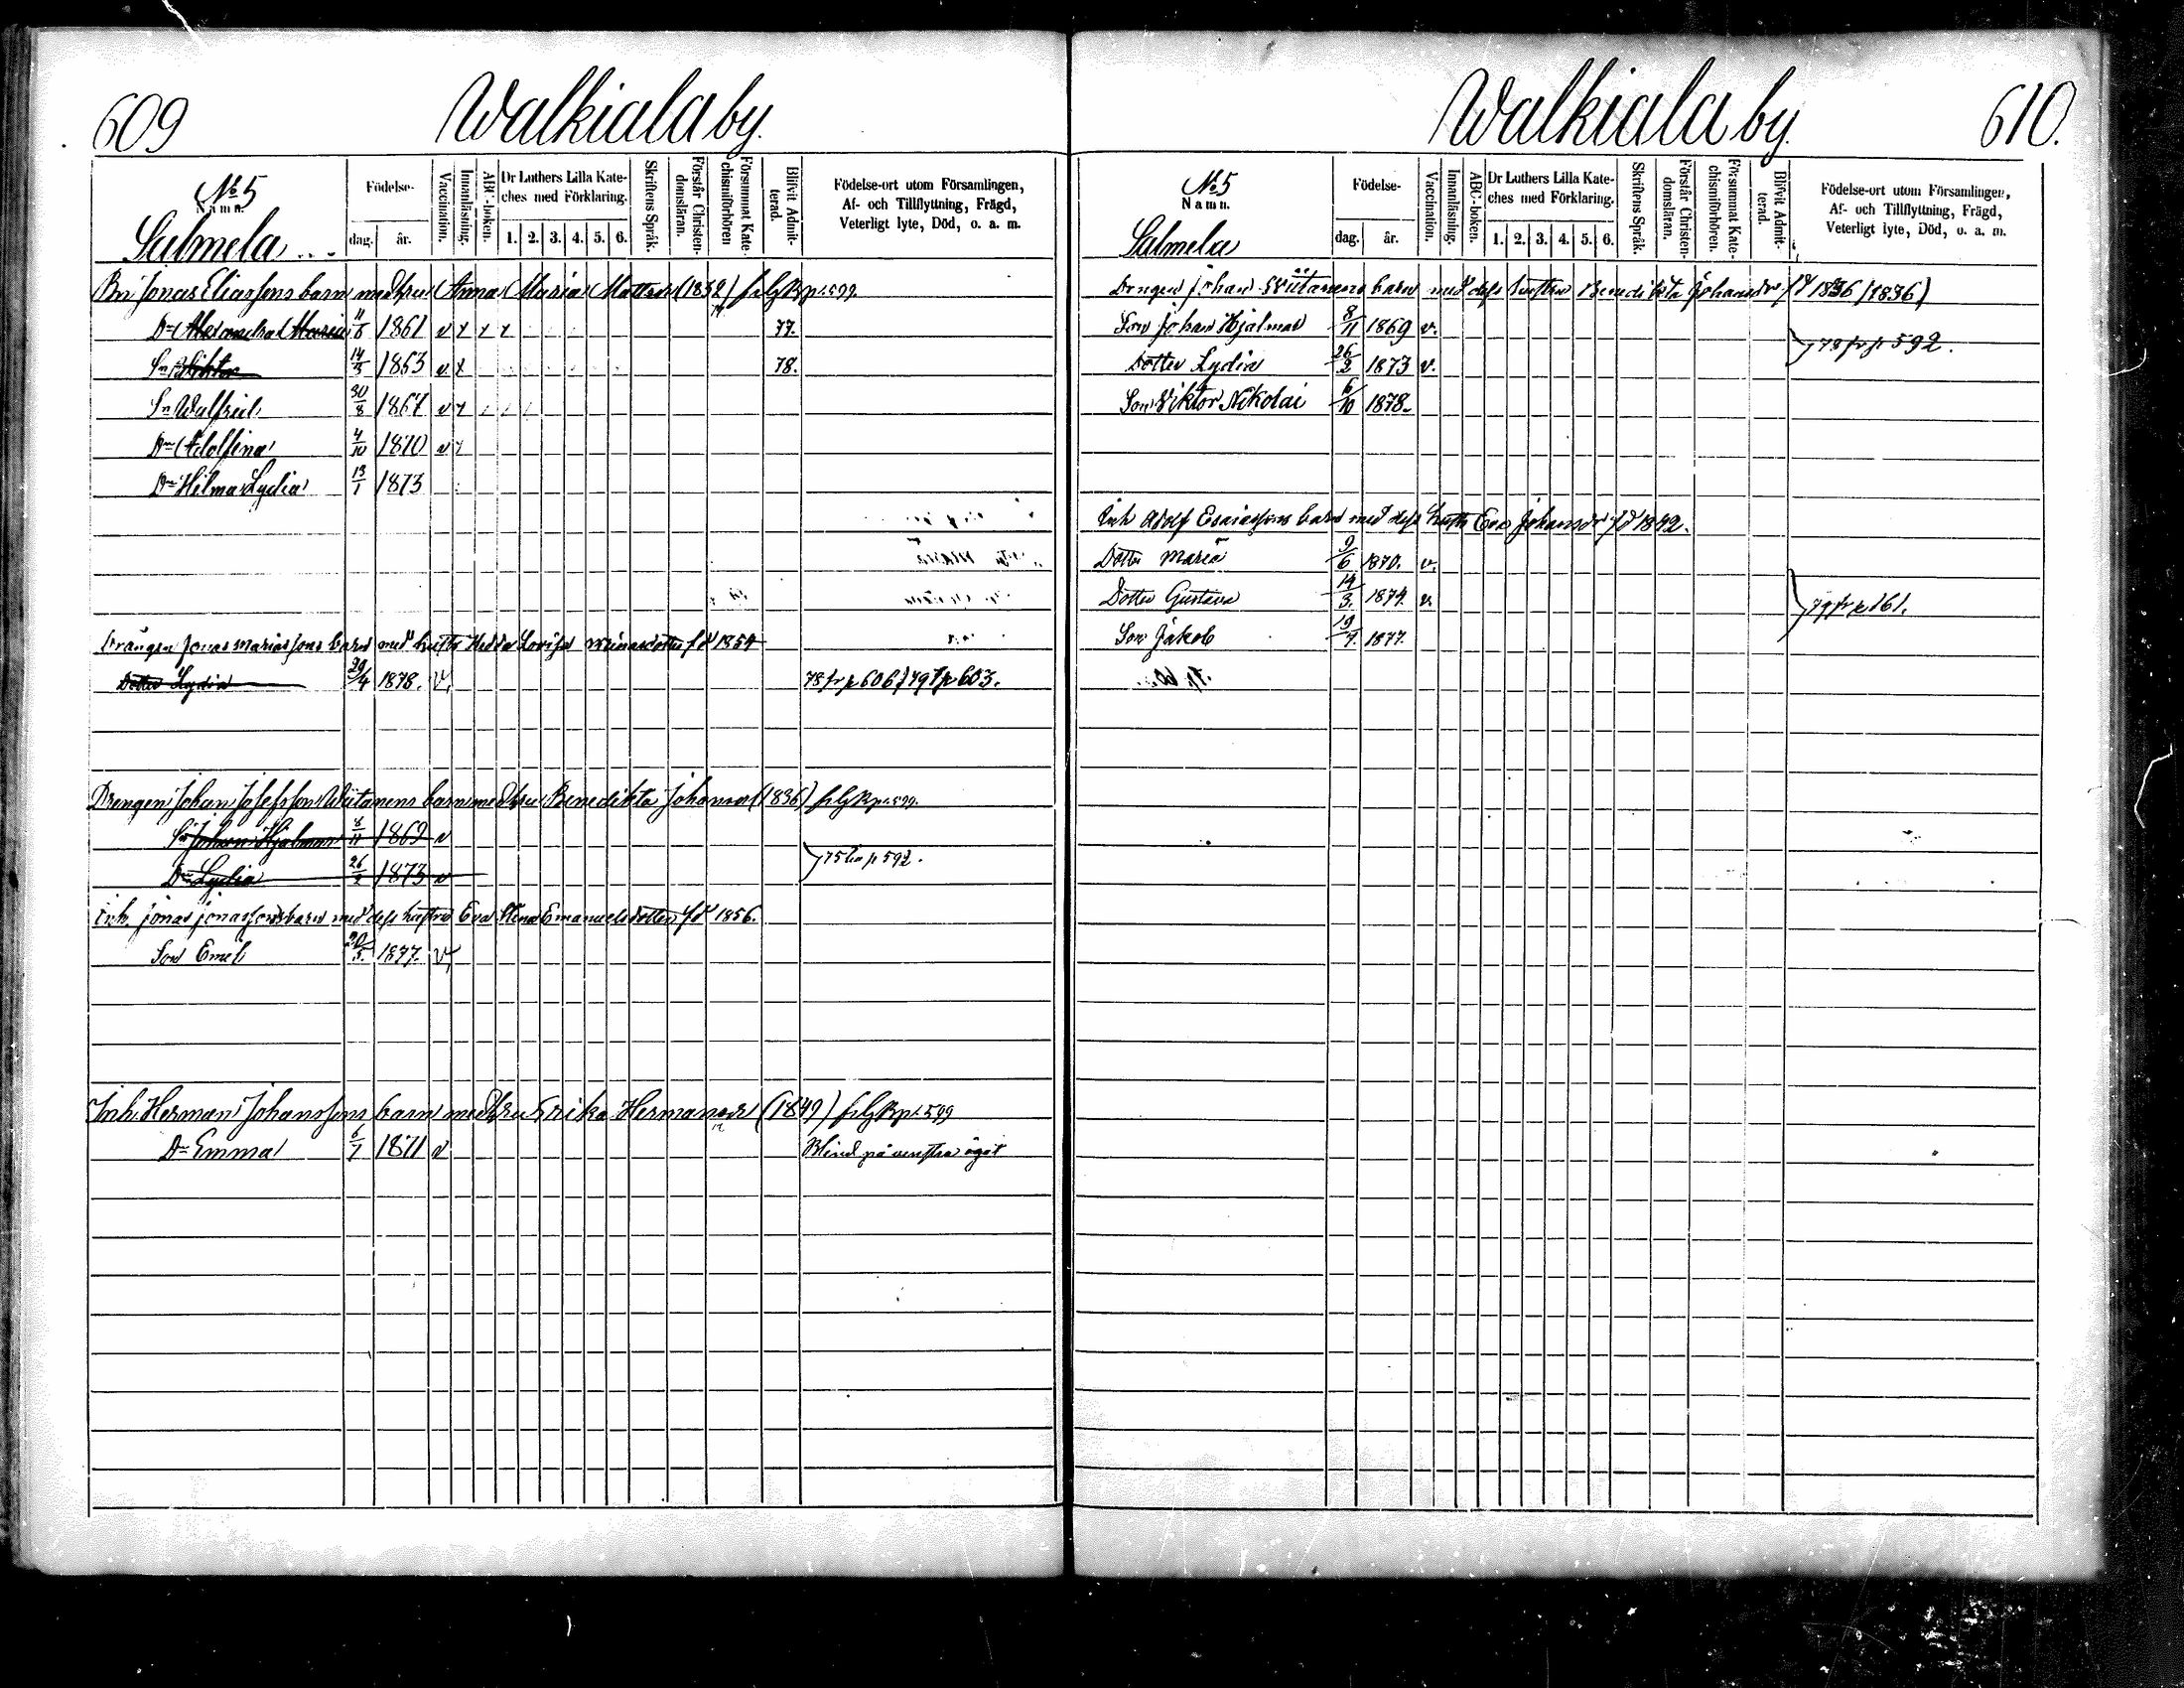 609
Walkiala by.
№ 5
Namn.
Salmela
Födelse-
dag.
år.
Vaccination.
Innanläsning.
ABC-boken.
Dr Luthers Lilla Kate-
ches med Förklaring.
1. 2. 3. 4. 5. 6.
Skriftens Språk.
Förstår Christen-
domsläran.
Försummat Kate-
chismiförhören
Blifvit Admit-
terad.
Födelse-ort utom Församlingen,
Af- och Tillflyttning, Frägd,
Veterligt lyte, Död, o. a. m.
Bn Jonas Eliassons barn med hru Anna Maria Mattsdr (1832) p. 599.
Dr Alexandra Maria 11/5 1861 v x x x 77.
Sn Viktor 14/5 1863 v x 78.
Sn Walfrid 30/8 1867 v x
Dr Adolfina 4/10 1870 v x
Dr Hilma Lydia 13/1 1873
Drängen Jonas Mariassons barn med hustru Hedda Lovisa dotter fd 1854
Dotter Lydia 29/4 1878. v. 78 fr p 606 / 79 t p 603.
Drengen Johan Josefsson Wiitanens barn med hru Benedikta Johansdr (1836) p. 599.
Sn Johan Hjalmar 8/11 1869 v
Dr Lydia 26/2 1873 v
75 p 592.
Inh. Jonas Jonassons barn med dess hustru Eva Stina Emanuelsdotter fd 1856.
Son Emel 20/5. 1877. v.
Inh. Herman Johanssons barn med hru Erika Hermansdr (1849) p. 599
Dr Emma 6/7 1871 v Blind på venstra ögat
Walkiala by.
610.
№ 5
Namn.
Salmela
Födelse-
dag.
år.
Vaccination.
Innanläsning.
ABC-boken.
Dr Luthers Lilla Kate-
ches med Förklaring.
1. 2. 3. 4. 5. 6.
Skriftens Språk.
Förstår Christen-
domsläran.
Försummat Kate-
chismiförhören.
Blifvit Admit-
terad.
Födelse-ort utom Församlingen,
Af- och Tillflyttning, Frägd,
Veterligt lyte, Död, o. a. m.
Drengen Johan Wiitanens barn med dess hustru Benedikta Johansdr fd 1836 (1836)
Son Johan Hjalmar 8/11 1869 v.
78 fr p 592.
Dotter Lydia 26/2 1873 v.
Son Viktor Nikolai 6/10 1878.
Inh Adolf Esaiassons barn med dess hustru Eva Johansdr fd 1842.
Dotter Maria 9/6 1870. v.
Dotter Gustava 14/3. 1874. v.
79 fr p 161.
Son Jakob 19/7. 1877.